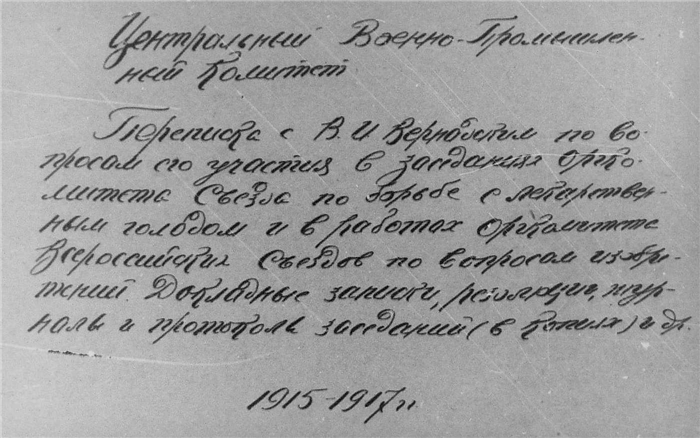 Центральный Военно-Промышлен-
ный Комитет
Переписка с В.И Вернадским по во-
просам его участия в заседаниях оргко-
митета Съезда по борьбе с лекарствен-
ным голодом и в работах Оргкомитета
Всероссийских Съездов по вопросам изобре-
тений. Докладные записки, резолюции, жур-
налы и протоколы заседаний (в копиях) и др.
1915-1917 гг